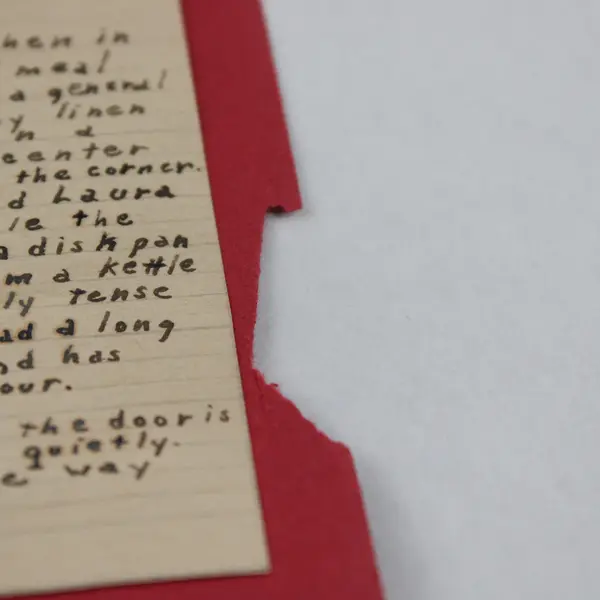 hen in
meal
a general
y linen
n a
center
the corner.
d Laura
le the
a dish pan
m a kettle
ly tense
ad a long
d has
our.
the door is
quietly.
e way